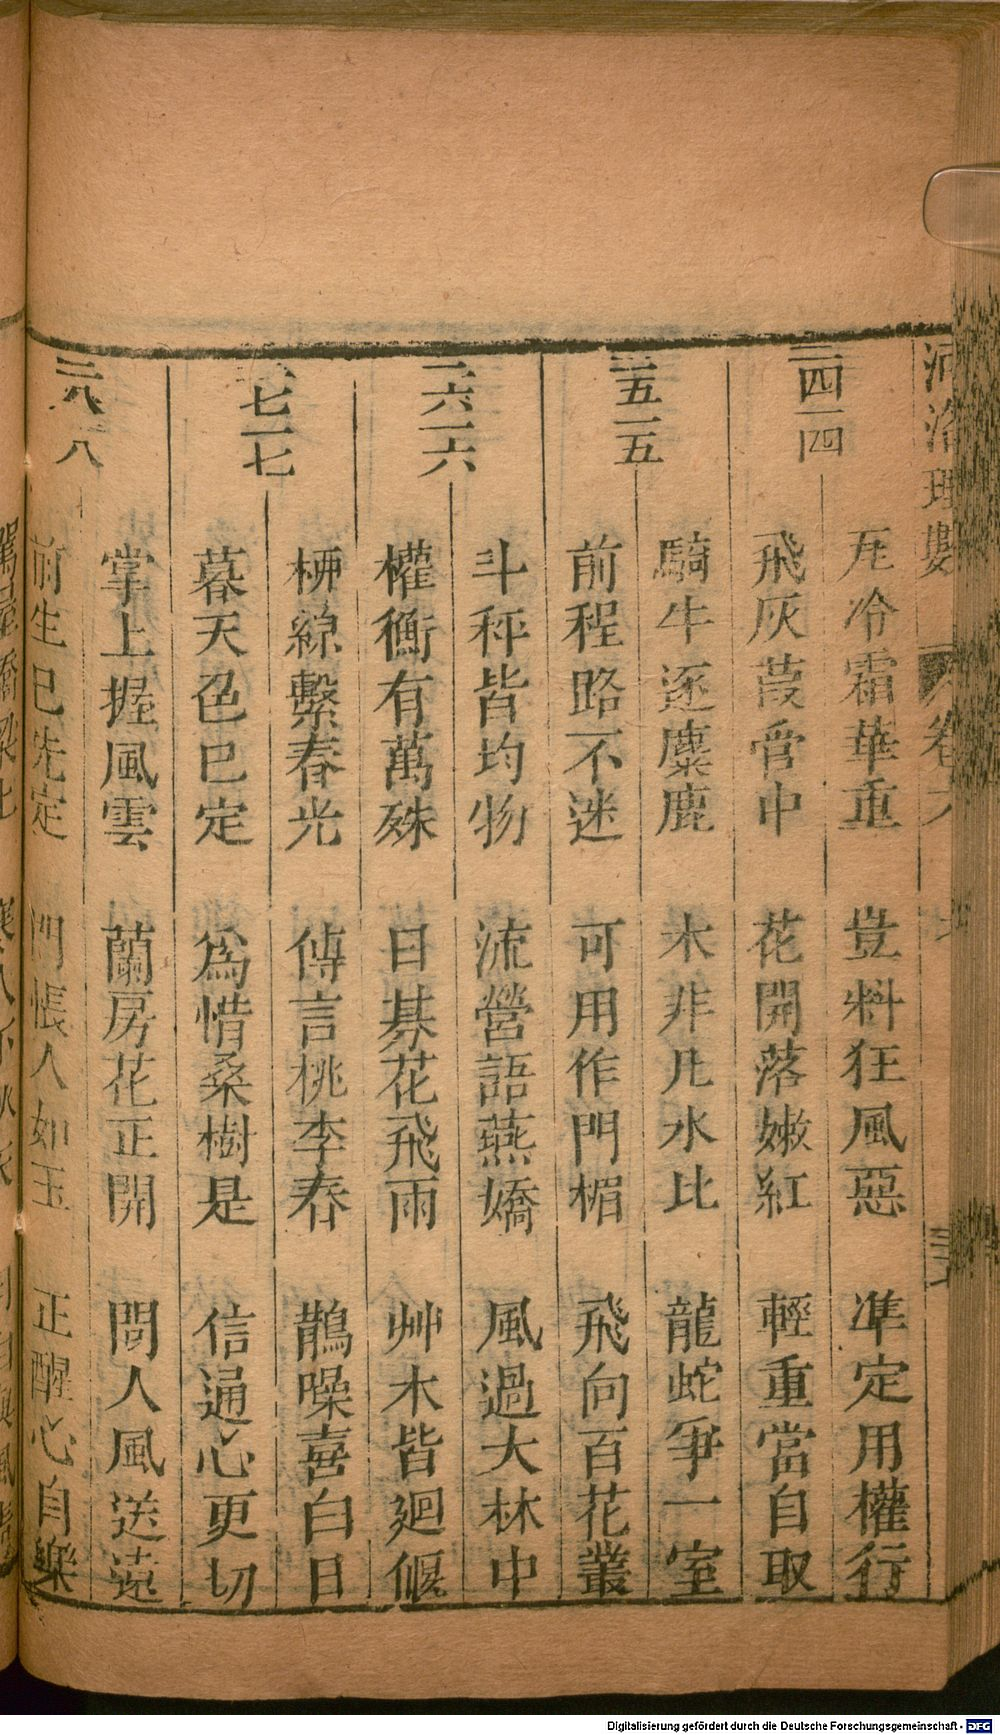 河洛理數 卷六
二四一四
瓦冷霜華重 豈料狂風惡 準定用權行
飛灰葭管中 花開落嫩紅 輕重當自取
二五一五
騎牛逐麋鹿 木非凡水比 龍蛇爭一室
前程路不迷 可用作門楣 飛向百花叢
二六一六
斗秤皆均物 流鶯語燕嬌 風過大林中
權衡有萬殊 日暮花飛雨 艸木皆廻偃
七一七
柳綠繫春光 傳言桃李春 鵲噪喜白日
暮天色巳定 為惜桑樹是 信通心更切
二八一八
掌上握風雲 蘭房花正開 問人風送遠
前生巳先定 帳人如玉 正醒心自樂
Digitalisierung gefördert durch die Deutsche Forschungsgemeinschaft - DFG